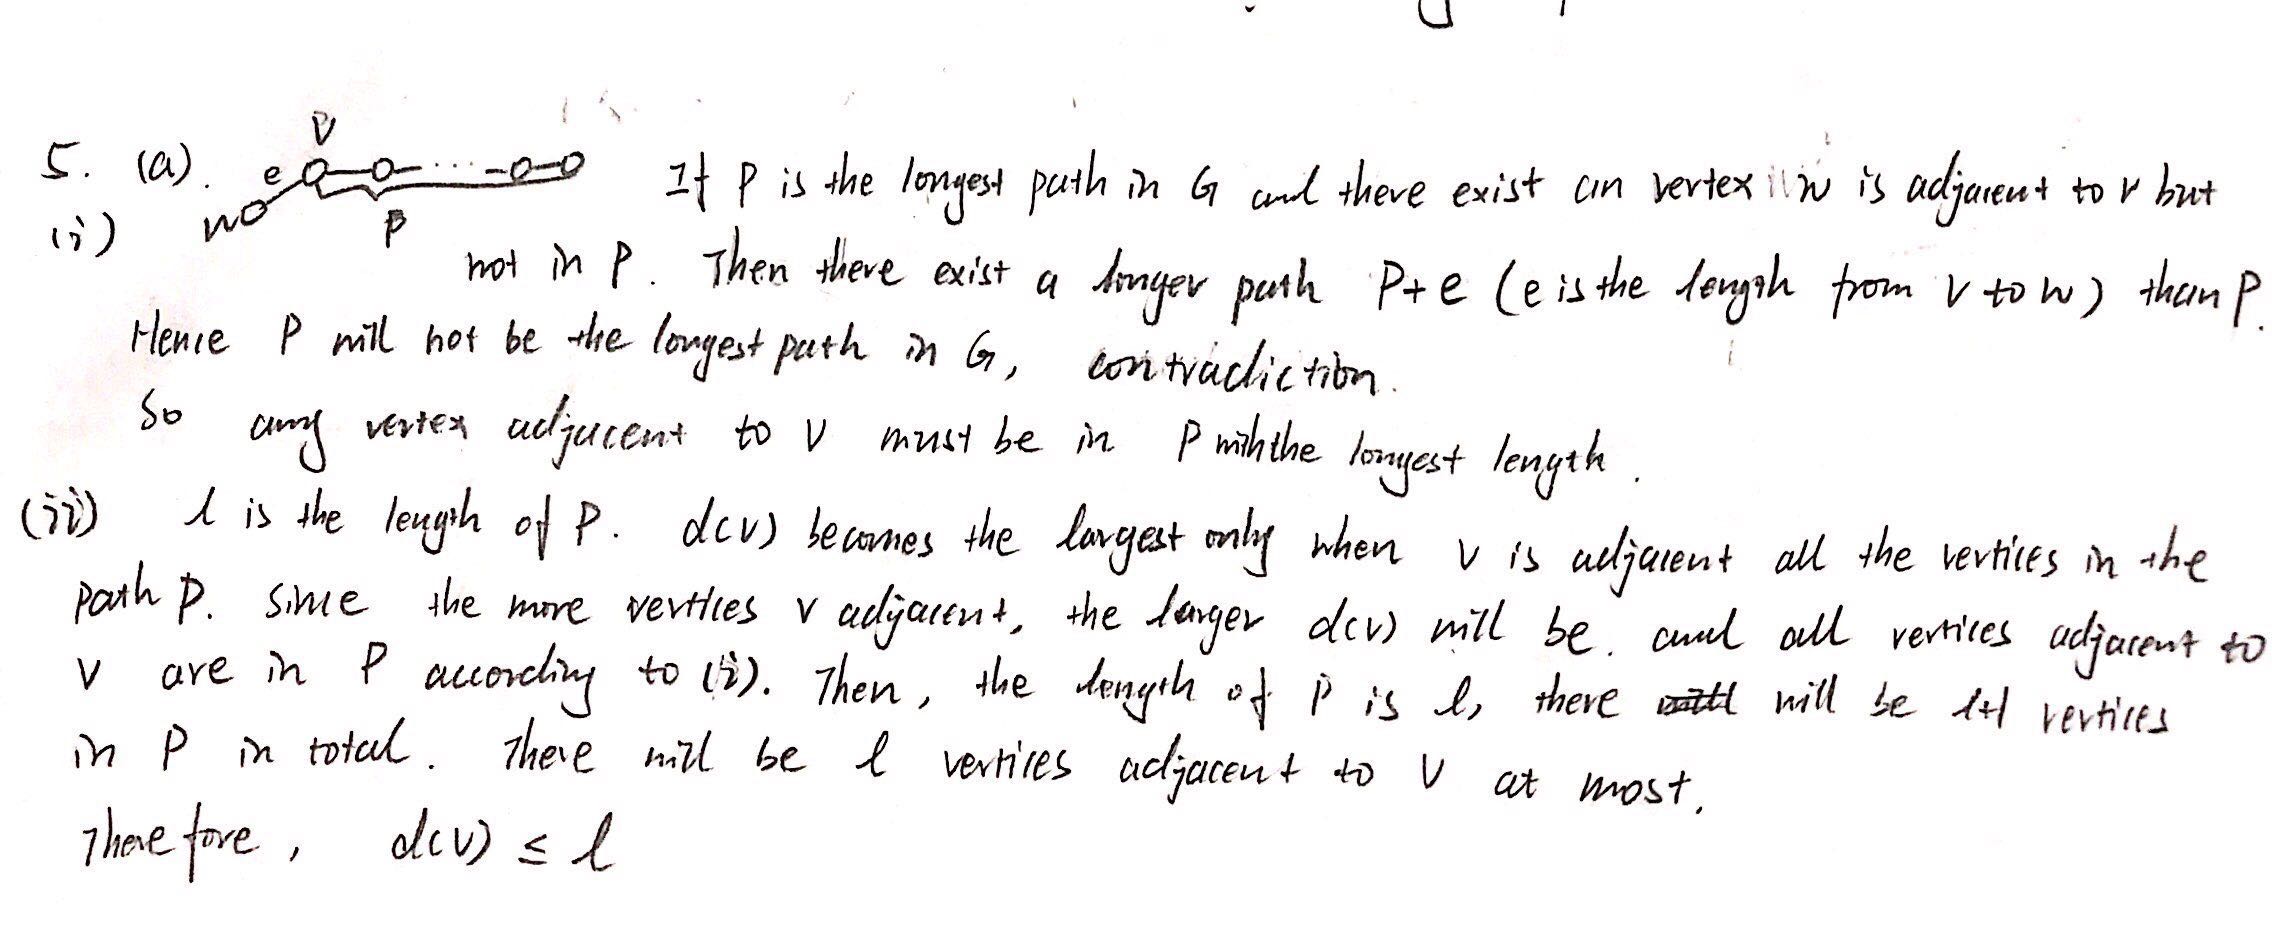 5. (a).
(i)
V
e
w
P
If P is the longest path in G and there exist an vertex w is adjacent to v but
not in P. Then there exist a longer path P+e (e is the length from v to w) than P.
Hence P will not be the longest path in G, contradiction.
So any vertex adjacent to V must be in P with the longest length.
(ii) l is the length of P. d(v) becomes the largest only when v is adjacent all the vertices in the
path P. Since the more vertices v adjacent, the larger d(v) will be. and all vertices adjacent to
V are in P according to (i). Then, the length of P is l, there will be l+1 vertices
in P in total. There will be l vertices adjacent to V at most.
Therefore, d(v) ≤ l